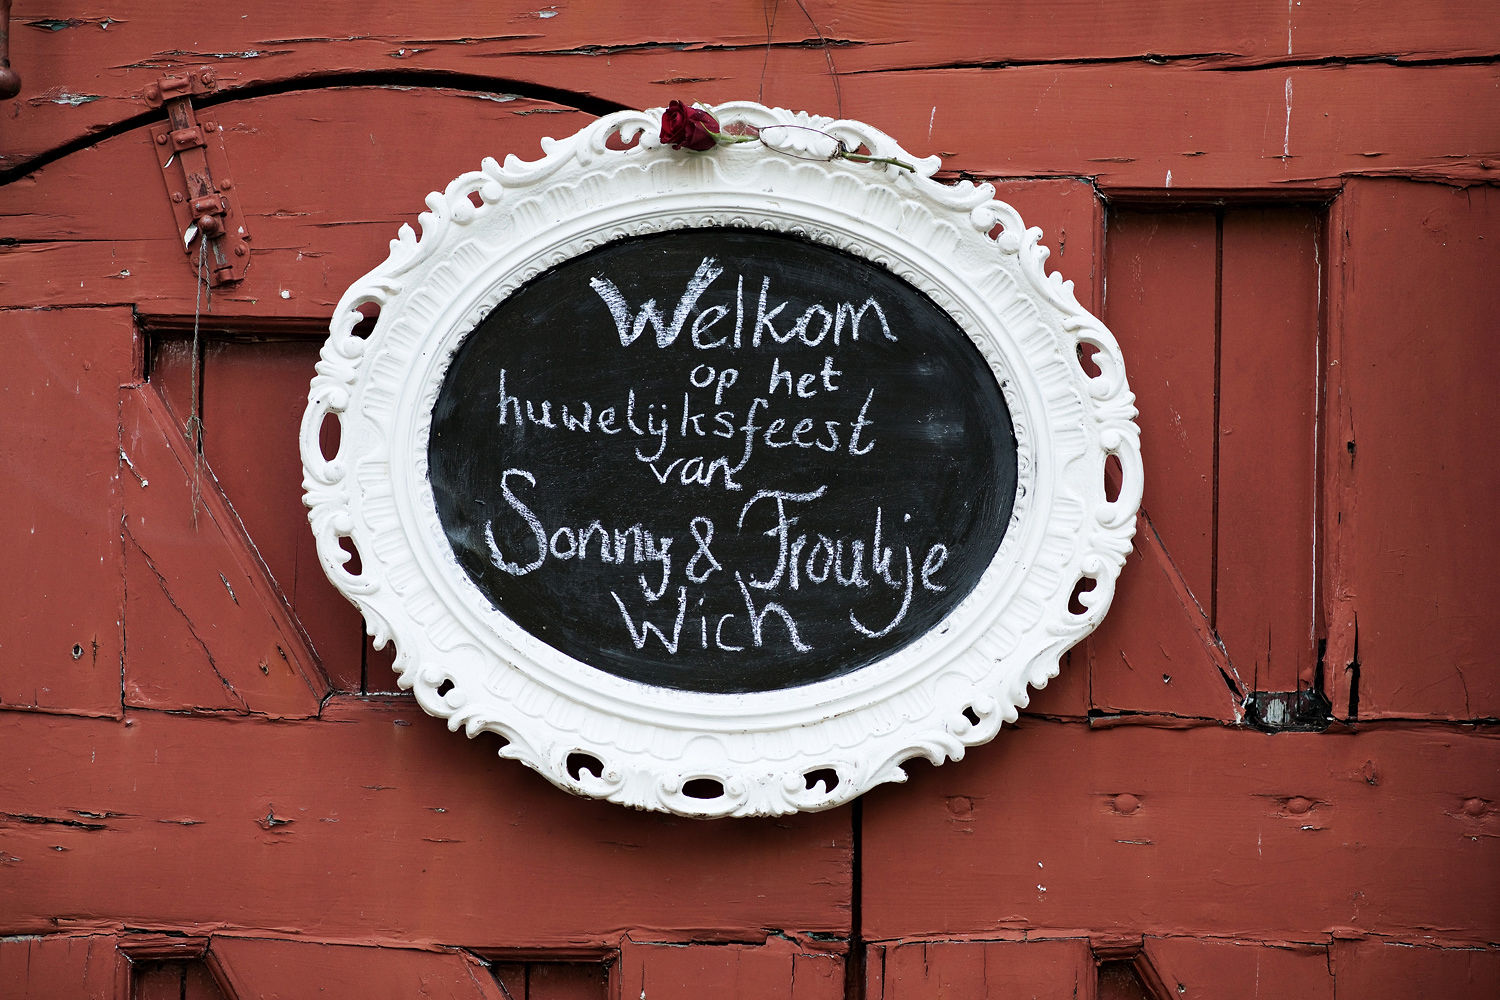 Welkom
op het
huwelijksfeest
van
Sonny & Froukje
Wich